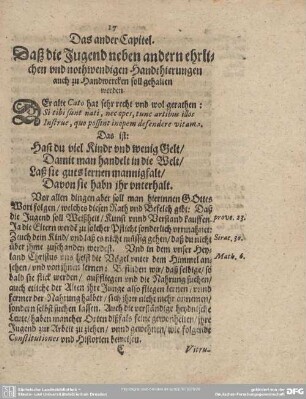 17
Das ander Capitel.
Daß die Jugend neben andern ehrli-
chen vnd nothwendigen Handthierungen
auch zu Handwercken soll gehalten
werden
DEr alte Cato hat sehr recht vnd wol gerathen:
Si tibi sunt nati, nec opes, tunc artibus illos
Instrue, quo possint inopem defendere vitam.
Das ist:
Hast du viel Kinder vnd wenig Gelt/
Damit man handelt in die Welt/
Laß sie guts lernen mannigfalt/
Davon sie habn jhr vnterhalt.
Vor allen dingen aber soll man hierinnen Gottes
Wort folgen/ welches diesen Rath vnd Befelch gibt: Daß
die Jugend soll Weißheit/ Kunst vnnd Verstand kauffen
prove. 23.
Ja die Eltern werdē zu solcher Pflicht sonderlich vermahnet:
Zeuch dein Kind/ vnd laß es nicht müssig gehen/ daß du nicht
Sirac. 30.
vber jhme zuschanden werdest. Vnd in dem vnser Hey-
land Christus vns heist die Vögel vnter dem Himmel an-
Math. 6.
sehen/ vnd von ihnen lernen: So finden wir/ daß selbige/ so
bald sie flick werden/ außfliegen vnd die Nahrung suchen/
auch etliche der Alten ihre Junge also fliegen lernen/ vnnd
ferner der Nahrung halber/ sich ihrer nicht mehr annemen/
sondern selbst suchen lassen. Auch die verständige heydnische
Leute/ haben mancher Orten dißfals feine gewonheiten/ jhre
Jugend zur Arbeit zu ziehen/ vnnd gewehnen/ wie folgende
Constitutiones vnd Historien bezeugen.
C
Vitru-